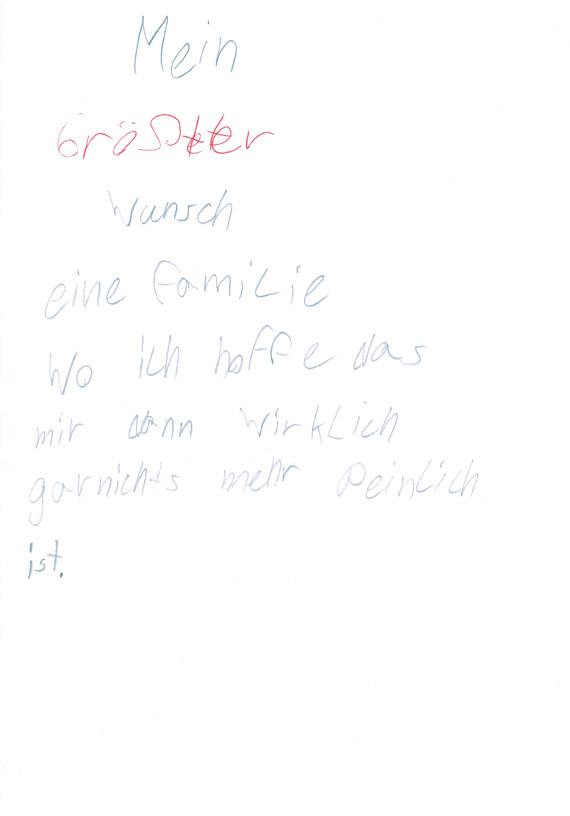 Mein
Größter
Wunsch
eine Familie
Wo ich hoffe das
mir dann wirklich
garnichts mehr Peinlich
ist.